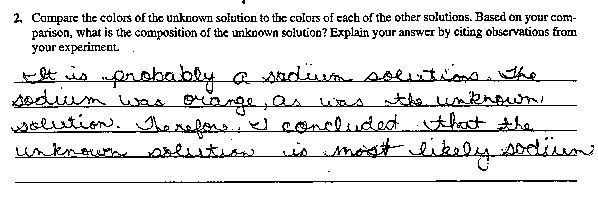 2. Compare the colors of the unknown solution to the colors of each of the other solutions. Based on your com-
parison, what is the composition of the unknown solution? Explain your answer by citing observations from
your experiment.
It is probably a sodium solution. The
sodium was orange, as was the unknown
solution. Therefore, I concluded that the
unknown solution is most likely sodium.